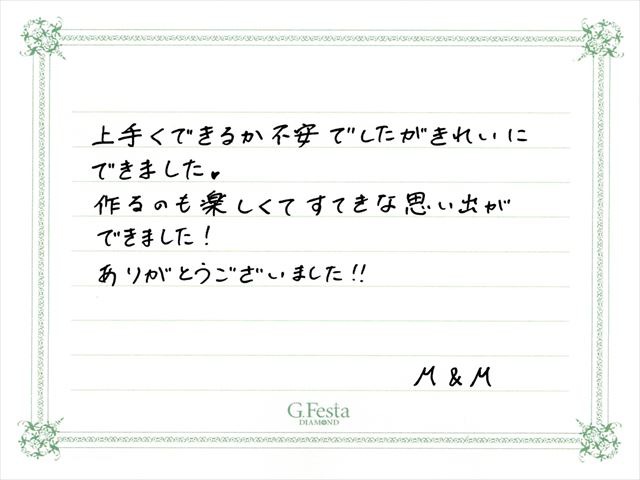 上手くできるか不安でしたがきれいに
できました♥
作るのも楽しくてすてきな思い出が
できました!
ありがとうございました!!
M & M
G.Festa
DIAMOND